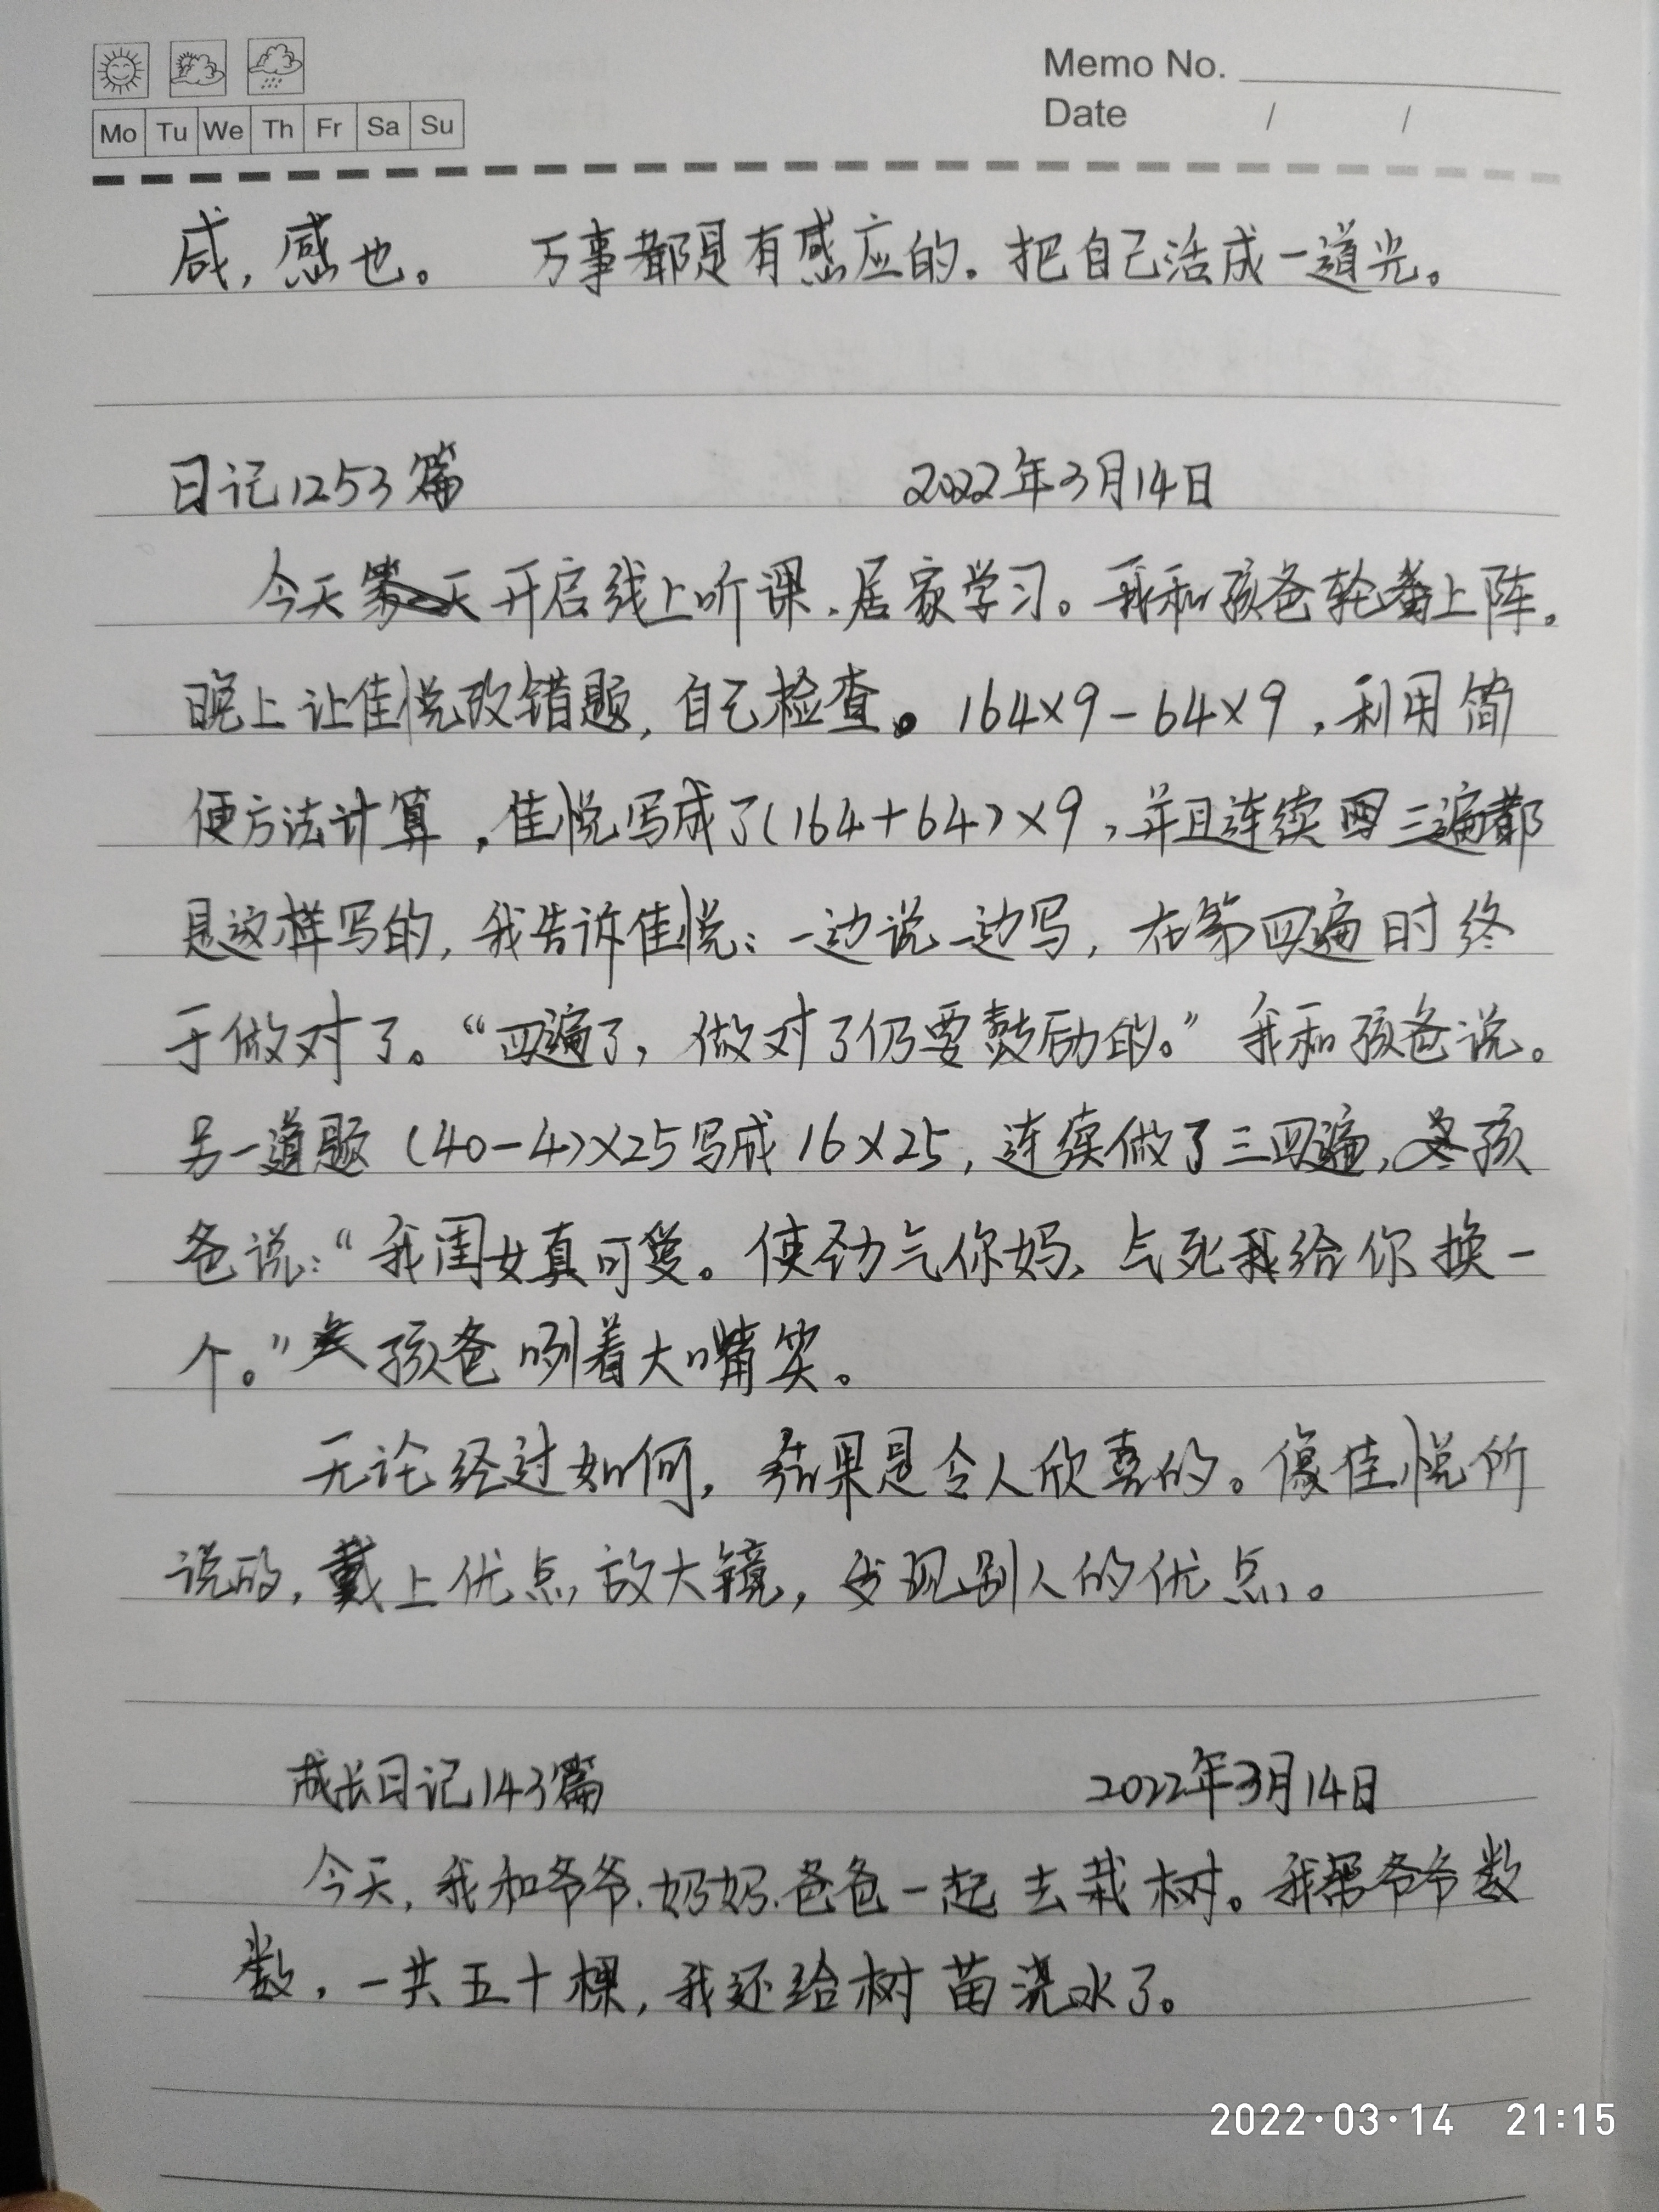 Memo No.
Mo Tu We Th Fr Sa Su
Date / /
咸，感也。 万事都是有感应的。把自己活成一道光。
日记1253篇 2022年3月14日
今天第一天开启线上听课、居家学习。我和孩爸轮番上阵。
晚上让佳悦改错题，自己检查。164×9-64×9，利用简
便方法计算，佳悦写成了(164+64)×9，并且连续四三遍都
是这样写的，我告诉佳悦：一边说一边写，在第四遍时终
于做对了。“四遍了，做对了仍要鼓励的。”我和孩爸说。
另一道题 (40-4)×25写成16×25，连续做了三四遍，孩
爸说：“我闺女真可爱。使劲气你妈、气死我给你换一
个。”孩爸咧着大嘴笑。
无论经过如何，结果是令人欣喜的。像佳悦所
说的，戴上优点放大镜，发现别人的优点。
成长日记143篇 2022年3月14日
今天，我和爷爷、妈妈、爸爸一起去栽树。我帮爷爷数
数，一共五十棵，我还给树苗浇水了。
2022·03·14 21:15